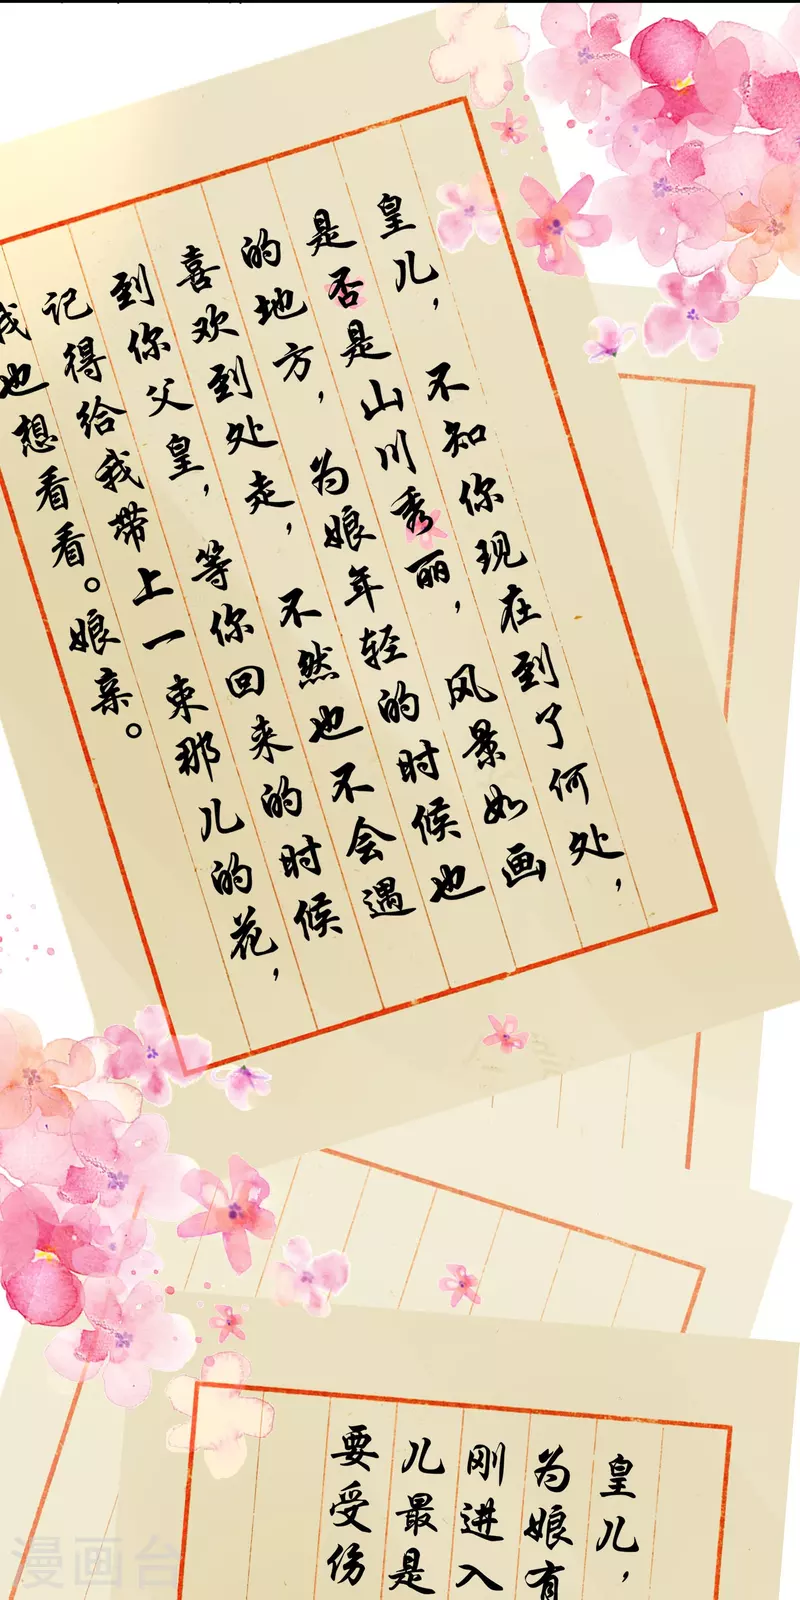 皇儿，不知你现在到了何处，
是否是山川秀丽，风景如画
的地方，为娘年轻的时候也
喜欢到处走，不然也不会遇
到你父皇，等你回来的时候
记得给我带上一束那儿的花，
我也想看看。娘亲。
皇儿，
为娘有
刚进入
儿最是
要受伤
漫画台